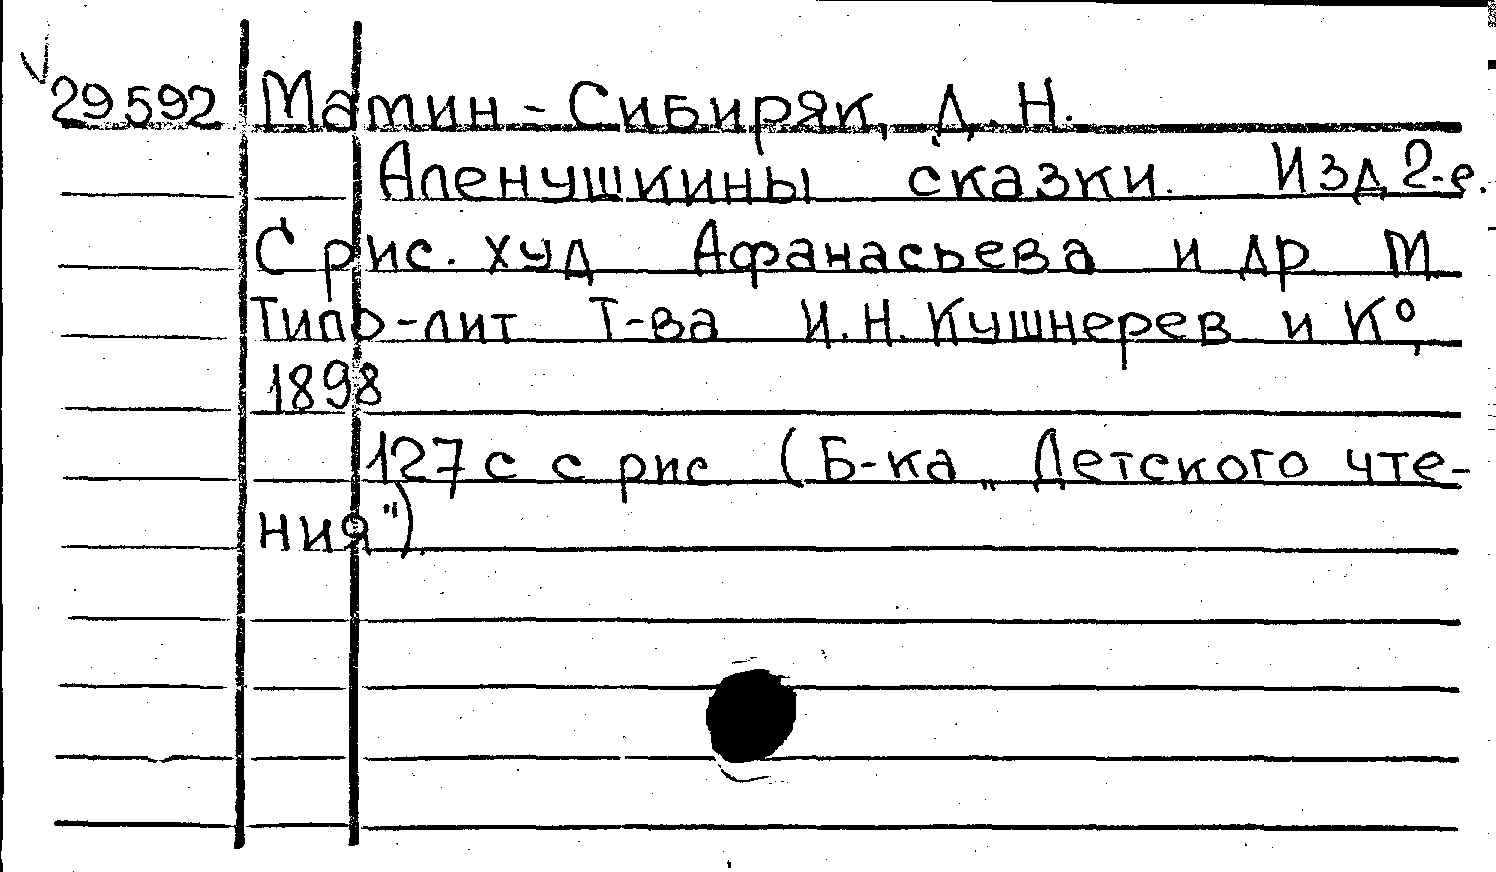 29592 Мамин-Сибиряк, Д.Н.
Аленушкины сказки. Изд 2-е.
С рис. худ Афанасьева и др М
Типо-лит Т-ва И.Н. Кушнерев и К°,
1898
127 с с рис (Б-ка „Детского чте-
ния").